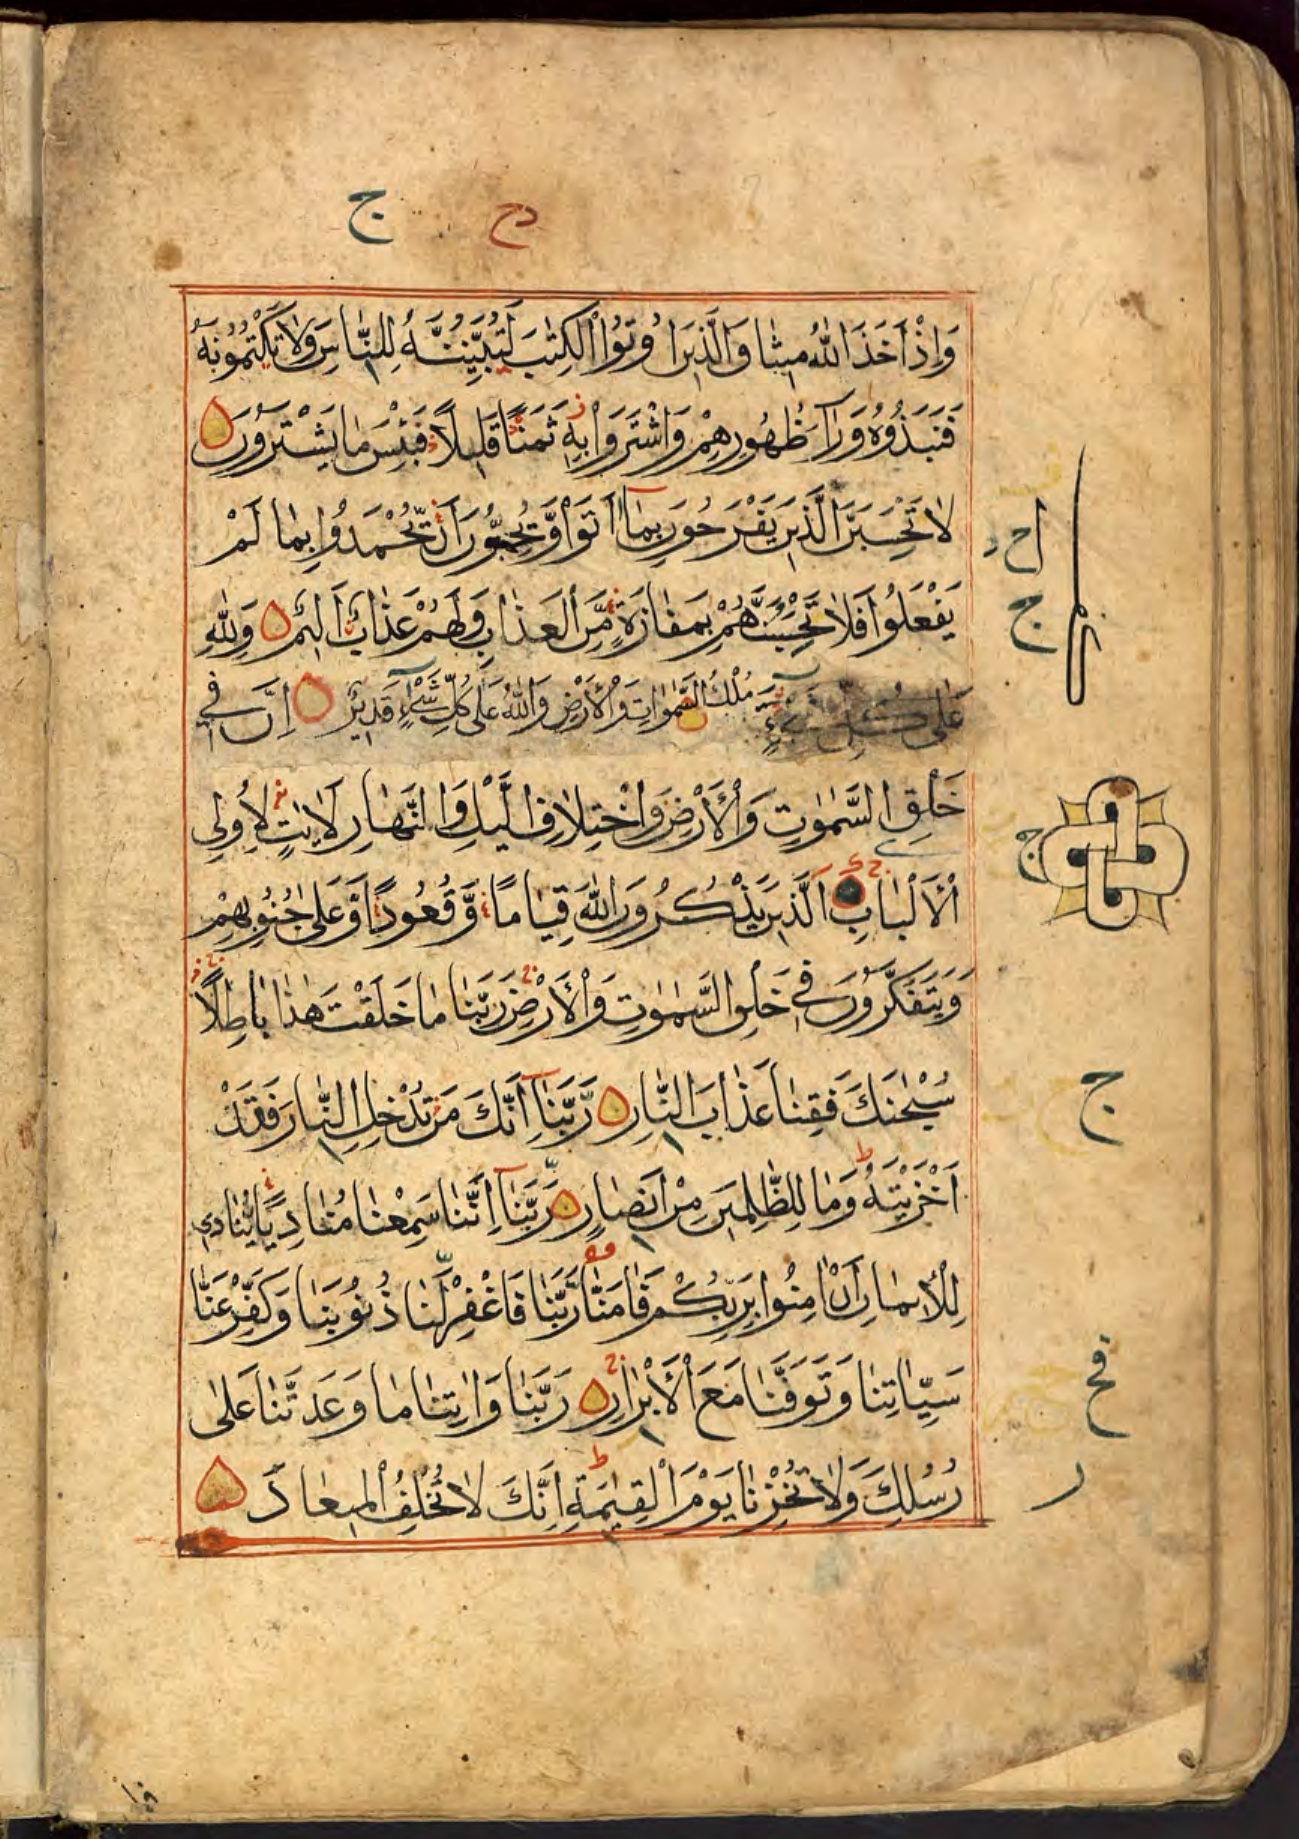 دح ج
وَإِذْ أَخَذَ اللّٰهُ مِيثَاقَ الَّذِينَ أُوتُوا الْكِتٰبَ لَتُبَيِّنُنَّهُ لِلنَّاسِ وَلَا تَكْتُمُونَهُ
فَنَبَذُوهُ وَرَآءَ ظُهُورِهِمْ وَاشْتَرَوْا بِهِ ثَمَنًا قَلِيلًا فَبِئْسَ مَا يَشْتَرُونَ
لَا تَحْسَبَنَّ الَّذِينَ يَفْرَحُونَ بِمَآ أَتَوْا وَّيُحِبُّونَ أَنْ يُّحْمَدُوا بِمَا لَمْ
يَفْعَلُوا فَلَا تَحْسَبَنَّهُمْ بِمَفَازَةٍ مِّنَ الْعَذَابِ وَلَهُمْ عَذَابٌ أَلِيمٌ وَلِلّٰهِ
مُلْكُ السَّمٰوَاتِ وَالْأَرْضِ وَاللّٰهُ عَلٰى كُلِّ شَيْءٍ قَدِيرٌ إِنَّ فِي
خَلْقِ السَّمٰوٰتِ وَالْأَرْضِ وَاخْتِلَافِ الَّيْلِ وَالنَّهَارِ لَاٰيٰتٍ لِأُولِي
الْأَلْبَابِ الَّذِينَ يَذْكُرُونَ اللّٰهَ قِيَامًا وَّقُعُودًا وَّعَلٰى جُنُوبِهِمْ
وَيَتَفَكَّرُونَ فِي خَلْقِ السَّمٰوٰتِ وَالْأَرْضِ رَبَّنَا مَا خَلَقْتَ هٰذَا بَاطِلًا
سُبْحٰنَكَ فَقِنَا عَذَابَ النَّارِ رَبَّنَآ إِنَّكَ مَنْ تُدْخِلِ النَّارَ فَقَدْ
أَخْزَيْتَهُ وَمَا لِلظّٰلِمِينَ مِنْ أَنْصَارٍ رَبَّنَآ إِنَّنَا سَمِعْنَا مُنَادِيًا يُّنَادِي
لِلْإِيمَانِ أَنْ اٰمِنُوا بِرَبِّكُمْ فَاٰمَنَّا رَبَّنَا فَاغْفِرْ لَنَا ذُنُوبَنَا وَكَفِّرْ عَنَّا
سَيِّاٰتِنَا وَتَوَفَّنَا مَعَ الْأَبْرَارِ رَبَّنَا وَاٰتِنَا مَا وَعَدْتَّنَا عَلٰى
رُسُلِكَ وَلَا تُخْزِنَا يَوْمَ الْقِيٰمَةِ إِنَّكَ لَا تُخْلِفُ الْمِيعَادَ
ج
ج
ج